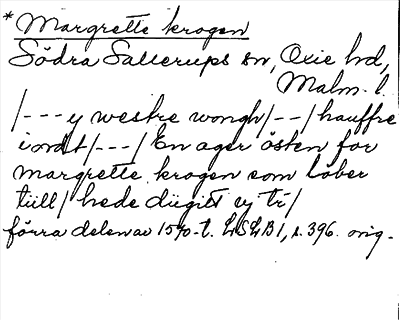 * Margrette krogen
Södra Sallerups sn, Oxie hd,
Malm. l.
/--- y westre wongh/--/hauffre
iordt/---/ En ager östen for
margrette krogen som löber
tiill/ hede diigitt vj tr/
förra delen av 1570-t. LSLB1, s. 396. orig.